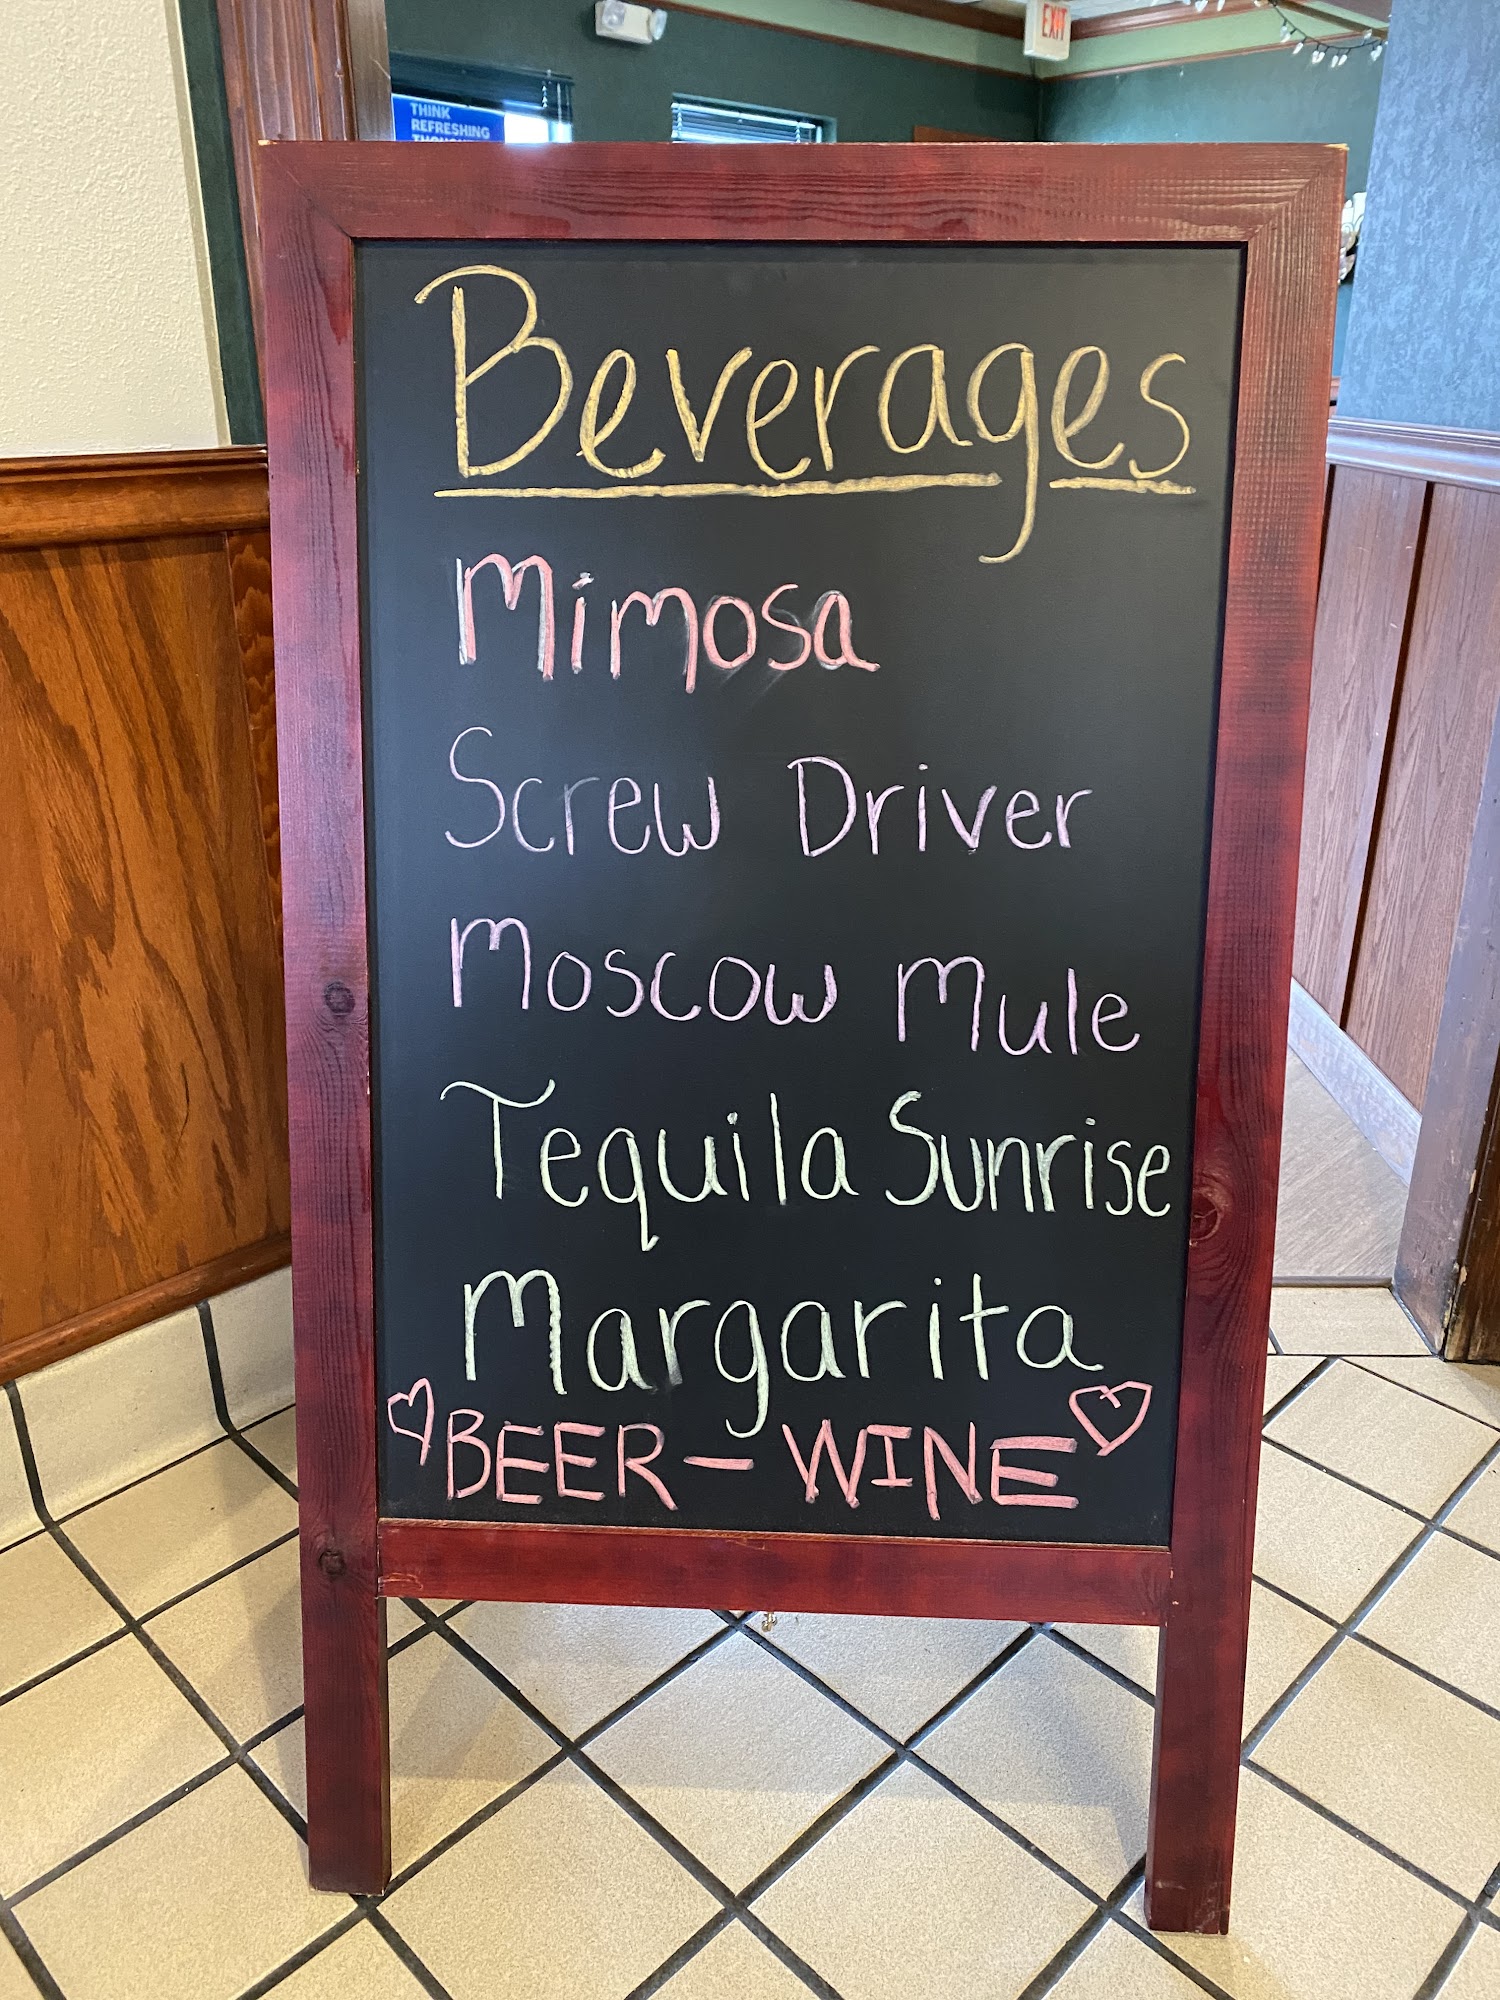 EXIT
THINK
REFRESHING
Beverages
Mimosa
Screw Driver
Moscow Mule
Tequila Sunrise
Margarita
BEER - WINE